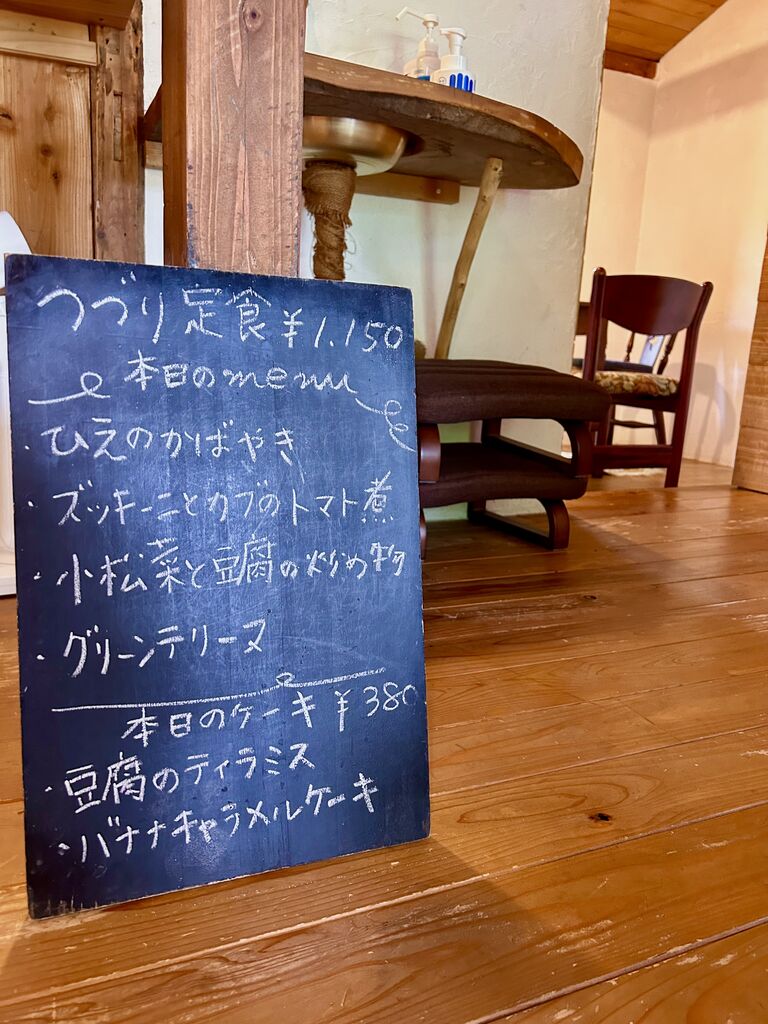 つづり定食¥1,150
本日のmenu
・ひえのかばやき
・ズッキーニとカブのトマト煮
・小松菜と豆腐の炒め物
・グリーンテリーヌ
本日のケーキ¥380
・豆腐のティラミス
・バナナキャラメルケーキ